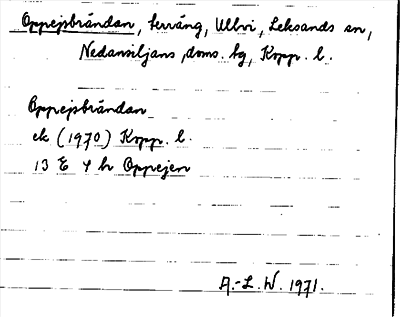 Oppejsbråndan, terräng, Ullvi, Leksands sn,
Nedansiljans doms. hg, Kopp. l.
Oppejsbråndan
ek (1970) Kopp. l.
13 E 4 h Oppejen
A.-L. W. 1971.